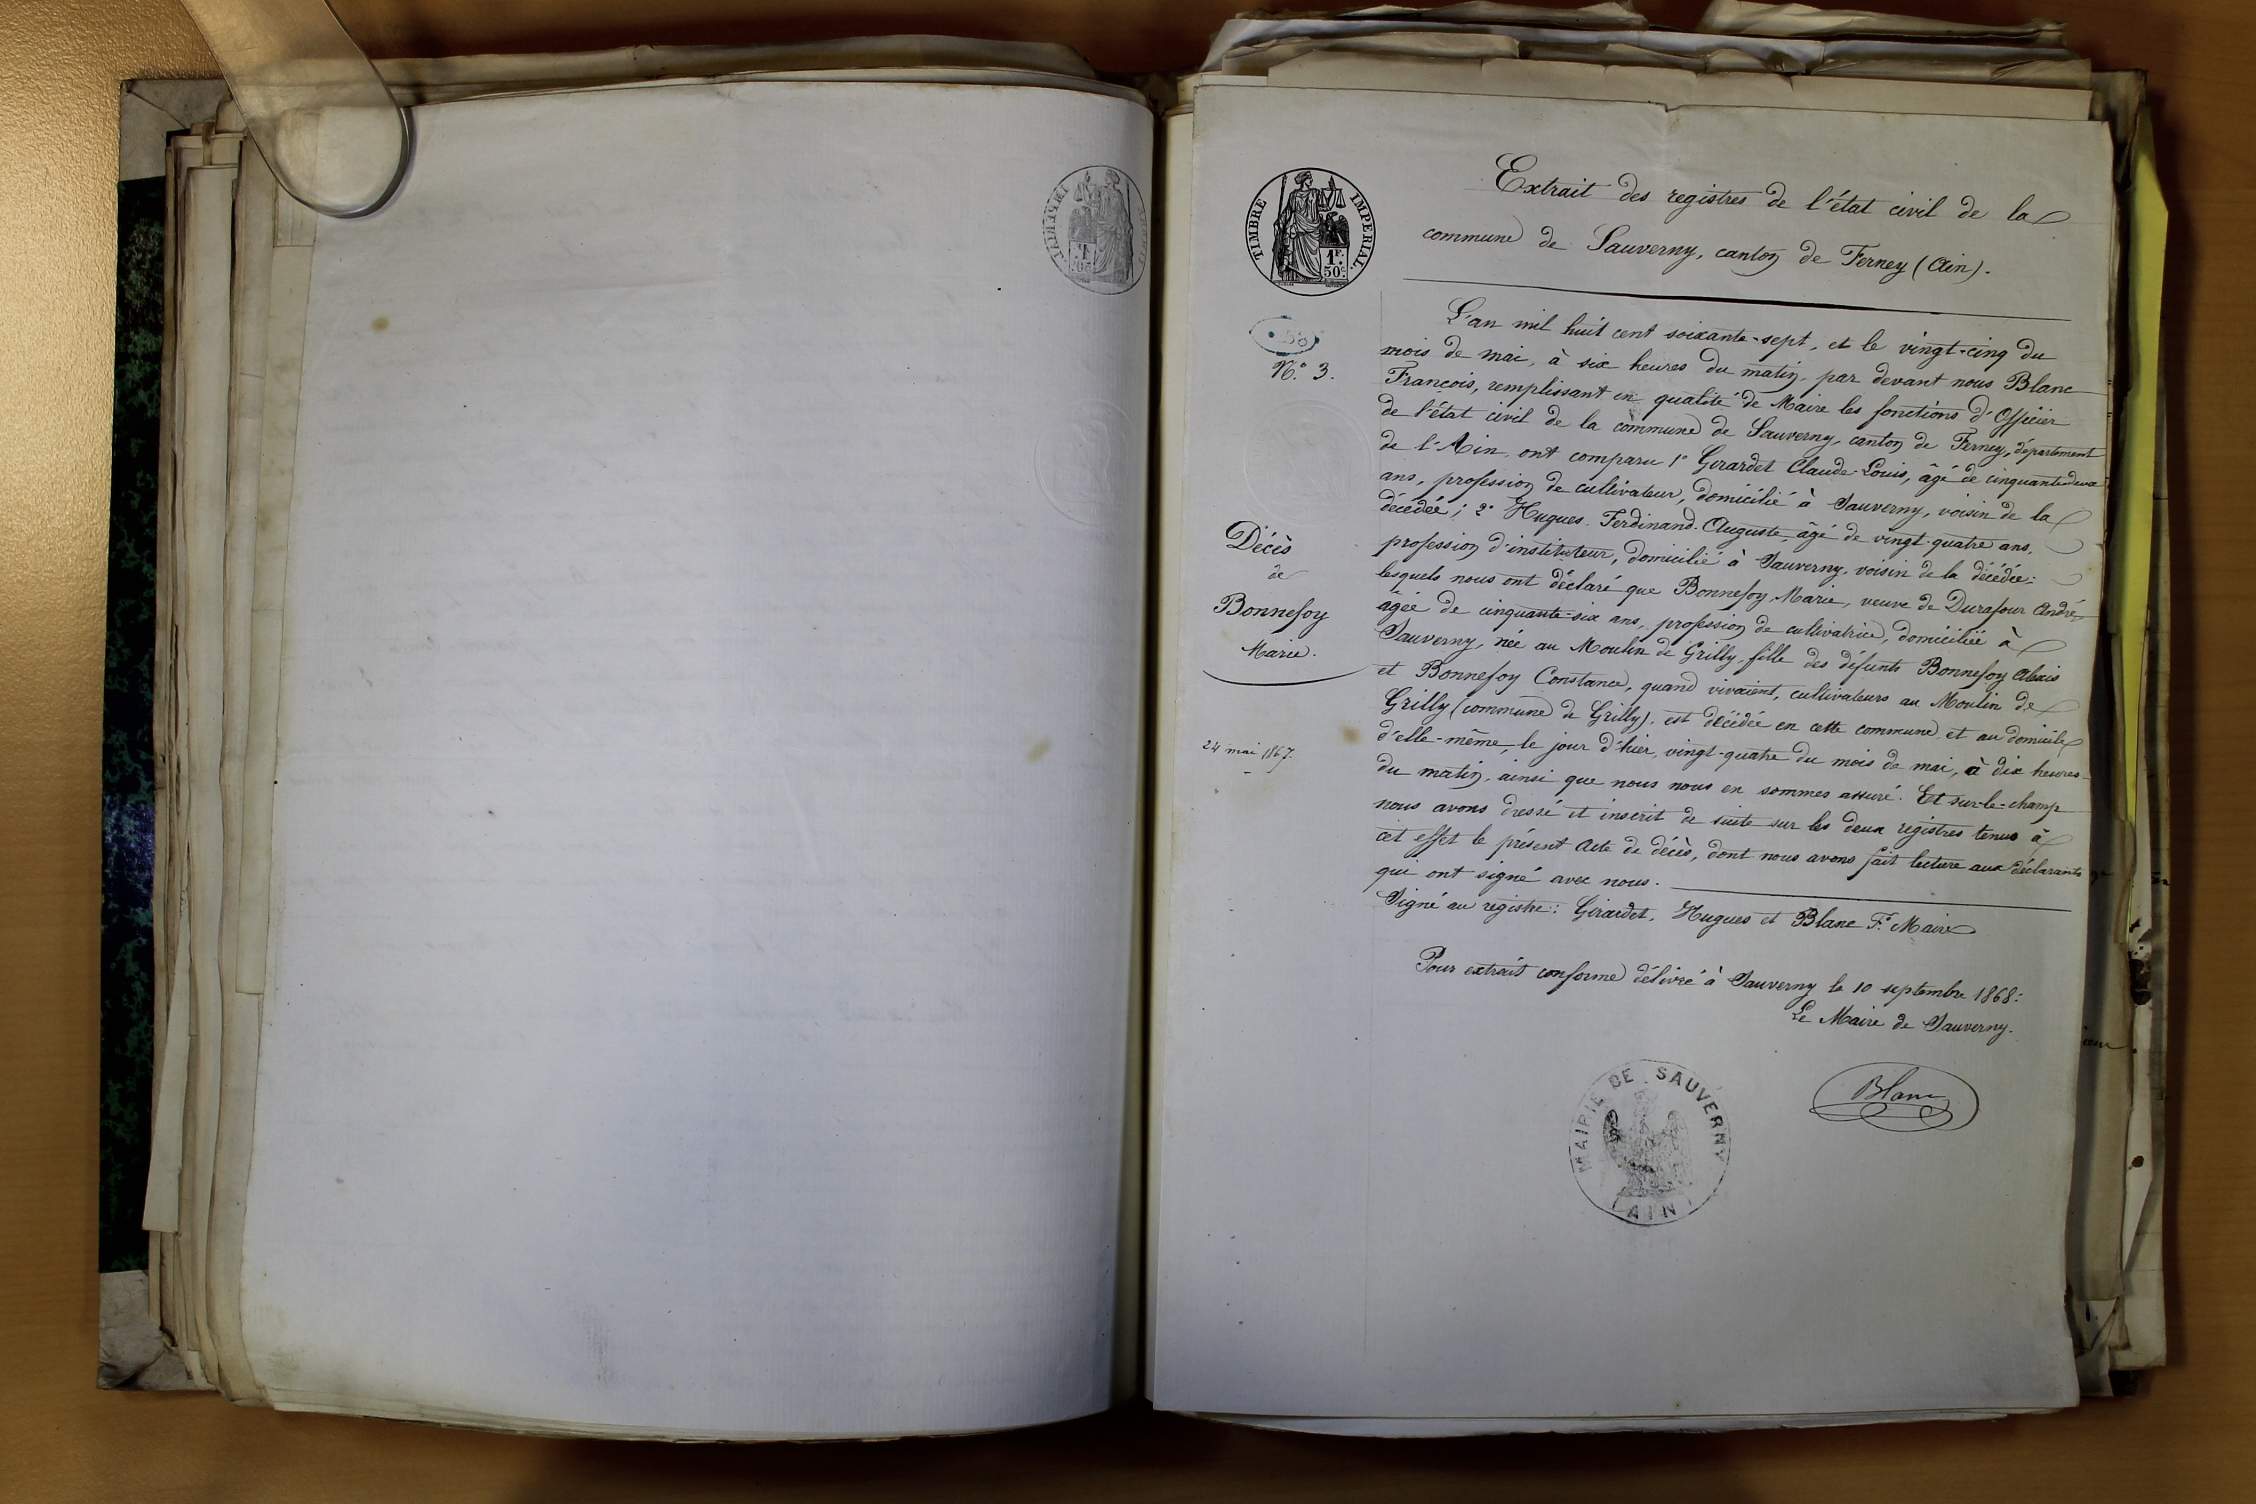 Extrait des registres de l'état civil de la
commune de Sauverny, canton de Ferney (Ain).
TIMBRE IMPERIAL
1F.
50c.
58
N.° 3.
Décès
de
Bonnefoy
Marie.
24 mai 1867.
L'an mil huit cent soixante-sept, et le vingt-cinq du
mois de mai, à six heures du matin, par devant nous Blanc
François, remplissant en qualité de Maire les fonctions d'Officier
de l'état civil de la commune de Sauverny, canton de Ferney, département
de l'Ain, ont comparu 1° Girardet Claude-Louis, âgé de cinquante-deux
ans, profession de cultivateur, domicilié à Sauverny, voisin de la
décédée; 2° Hugues Ferdinand-Auguste, âgé de vingt-quatre ans,
profession d'instituteur, domicilié à Sauverny, voisin de la décédée;
lesquels nous ont déclaré que Bonnefoy Marie, veuve de Durafour André,
âgée de cinquante-six ans, profession de cultivatrice, domiciliée à
Sauverny, née au Moulin de Grilly, fille des défunts Bonnefoy Alexis
et Bonnefoy Constance, quand vivaient, cultivateurs au Moulin de
Grilly (commune de Grilly), est décédée en cette commune et au domicile
d'elle-même, le jour d'hier, vingt-quatre du mois de mai, à dix heures
du matin, ainsi que nous nous en sommes assuré. Et sur-le-champ
nous avons dressé et inscrit de suite sur les deux registres tenus à
cet effet le présent Acte de décès, dont nous avons fait lecture aux déclarants
qui ont signé avec nous.
Signé au registre: Girardet, Hugues et Blanc F.s Maire
Pour extrait conforme délivré à Sauverny le 10 septembre 1868:
Le Maire de Sauverny.
Blanc
MAIRIE DE SAUVERNY
(AIN)